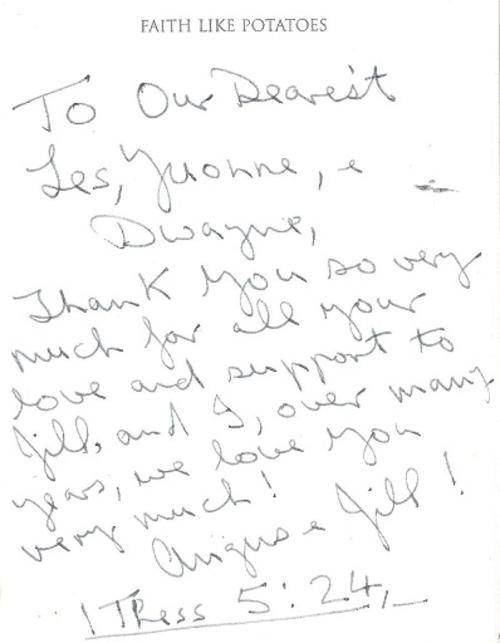 FAITH LIKE POTATOES
To Our Dearest
Les, Yvonne, e
Dwayne,
Thank you so very
much for all your
love and support to
Jill, and I, over many
years, we love you
very much!
Angus e Jill!
1 Thess 5:24,